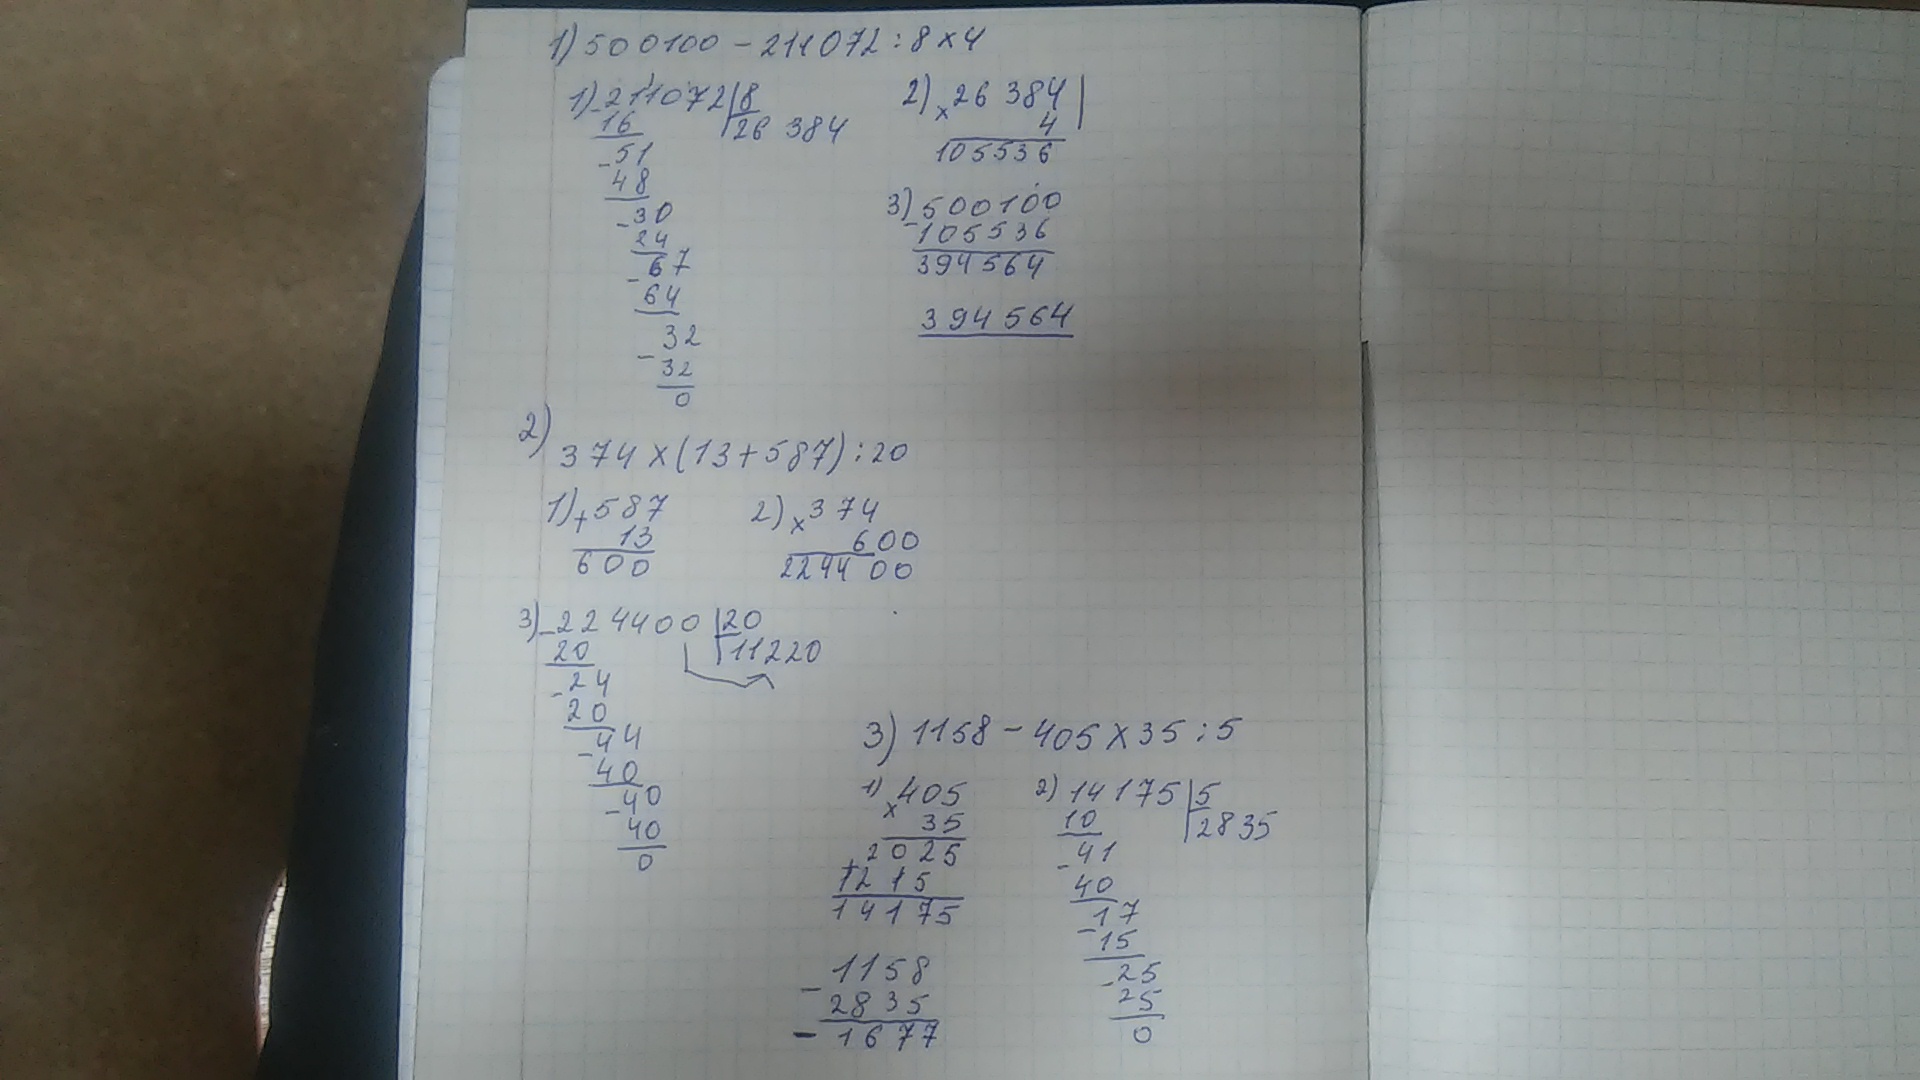 1) 500100 - 211072 : 8 x 4
1) - 211072 | 8
16 26 384
- 51
48
- 30
24
- 67
64
- 32
32
0
2) x 26 384
4
105536
3) - 500100
105536
394564
394564
2) 374 x (13 + 587) : 20
1) + 587
13
600
2) x 374
600
224400
3) - 224400 | 20
20 11220
- 24
20
- 44
40
- 40
40
0
3) 1158 - 405 x 35 : 5
1) x 405
35
+ 2025
1215
14175
2) 14175 | 5
10 2835
- 41
40
- 17
- 15
- 25
25
0
- 1158
2835
- 1677